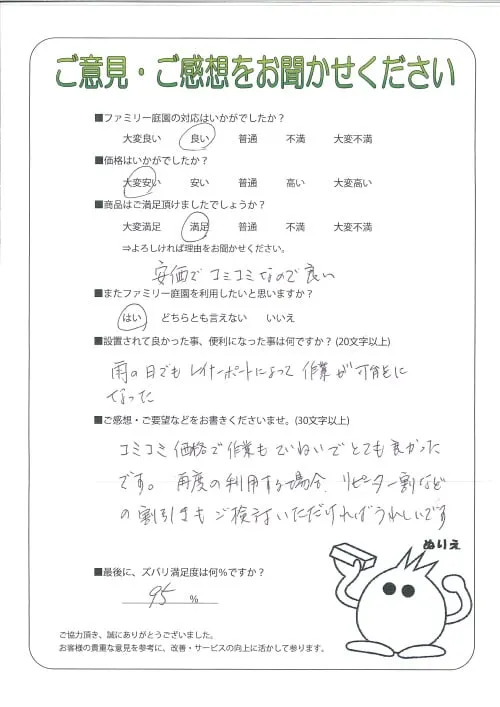 ご意見・ご感想をお聞かせください
■ファミリー庭園の対応はいかがでしたか?
大変良い 良い 普通 不満 大変不満
■価格はいかがでしたか?
大変安い 安い 普通 高い 大変高い
■商品はご満足頂けましたでしょうか?
大変満足 満足 普通 不満 大変不満
⇒よろしければ理由をお聞かせください。
安価でコミコミなので良い
■またファミリー庭園を利用したいと思いますか?
はい どちらとも言えない いいえ
■設置されて良かった事、便利になった事は何ですか? (20文字以上)
雨の日でもレイナーポートによって作業が可能に
なった
■ご感想・ご要望などをお書きくださいませ。(30文字以上)
コミコミ価格で作業もていねいでとても良かった
です。再度の利用する場合、リピーター割など
の割引きもご検討いただければうれしいです
ぬりえ
■最後に、ズバリ満足度は何%ですか?
95 %
ご協力頂き、誠にありがとうございました。
お客様の貴重な意見を参考に、改善・サービスの向上に活かして参ります。